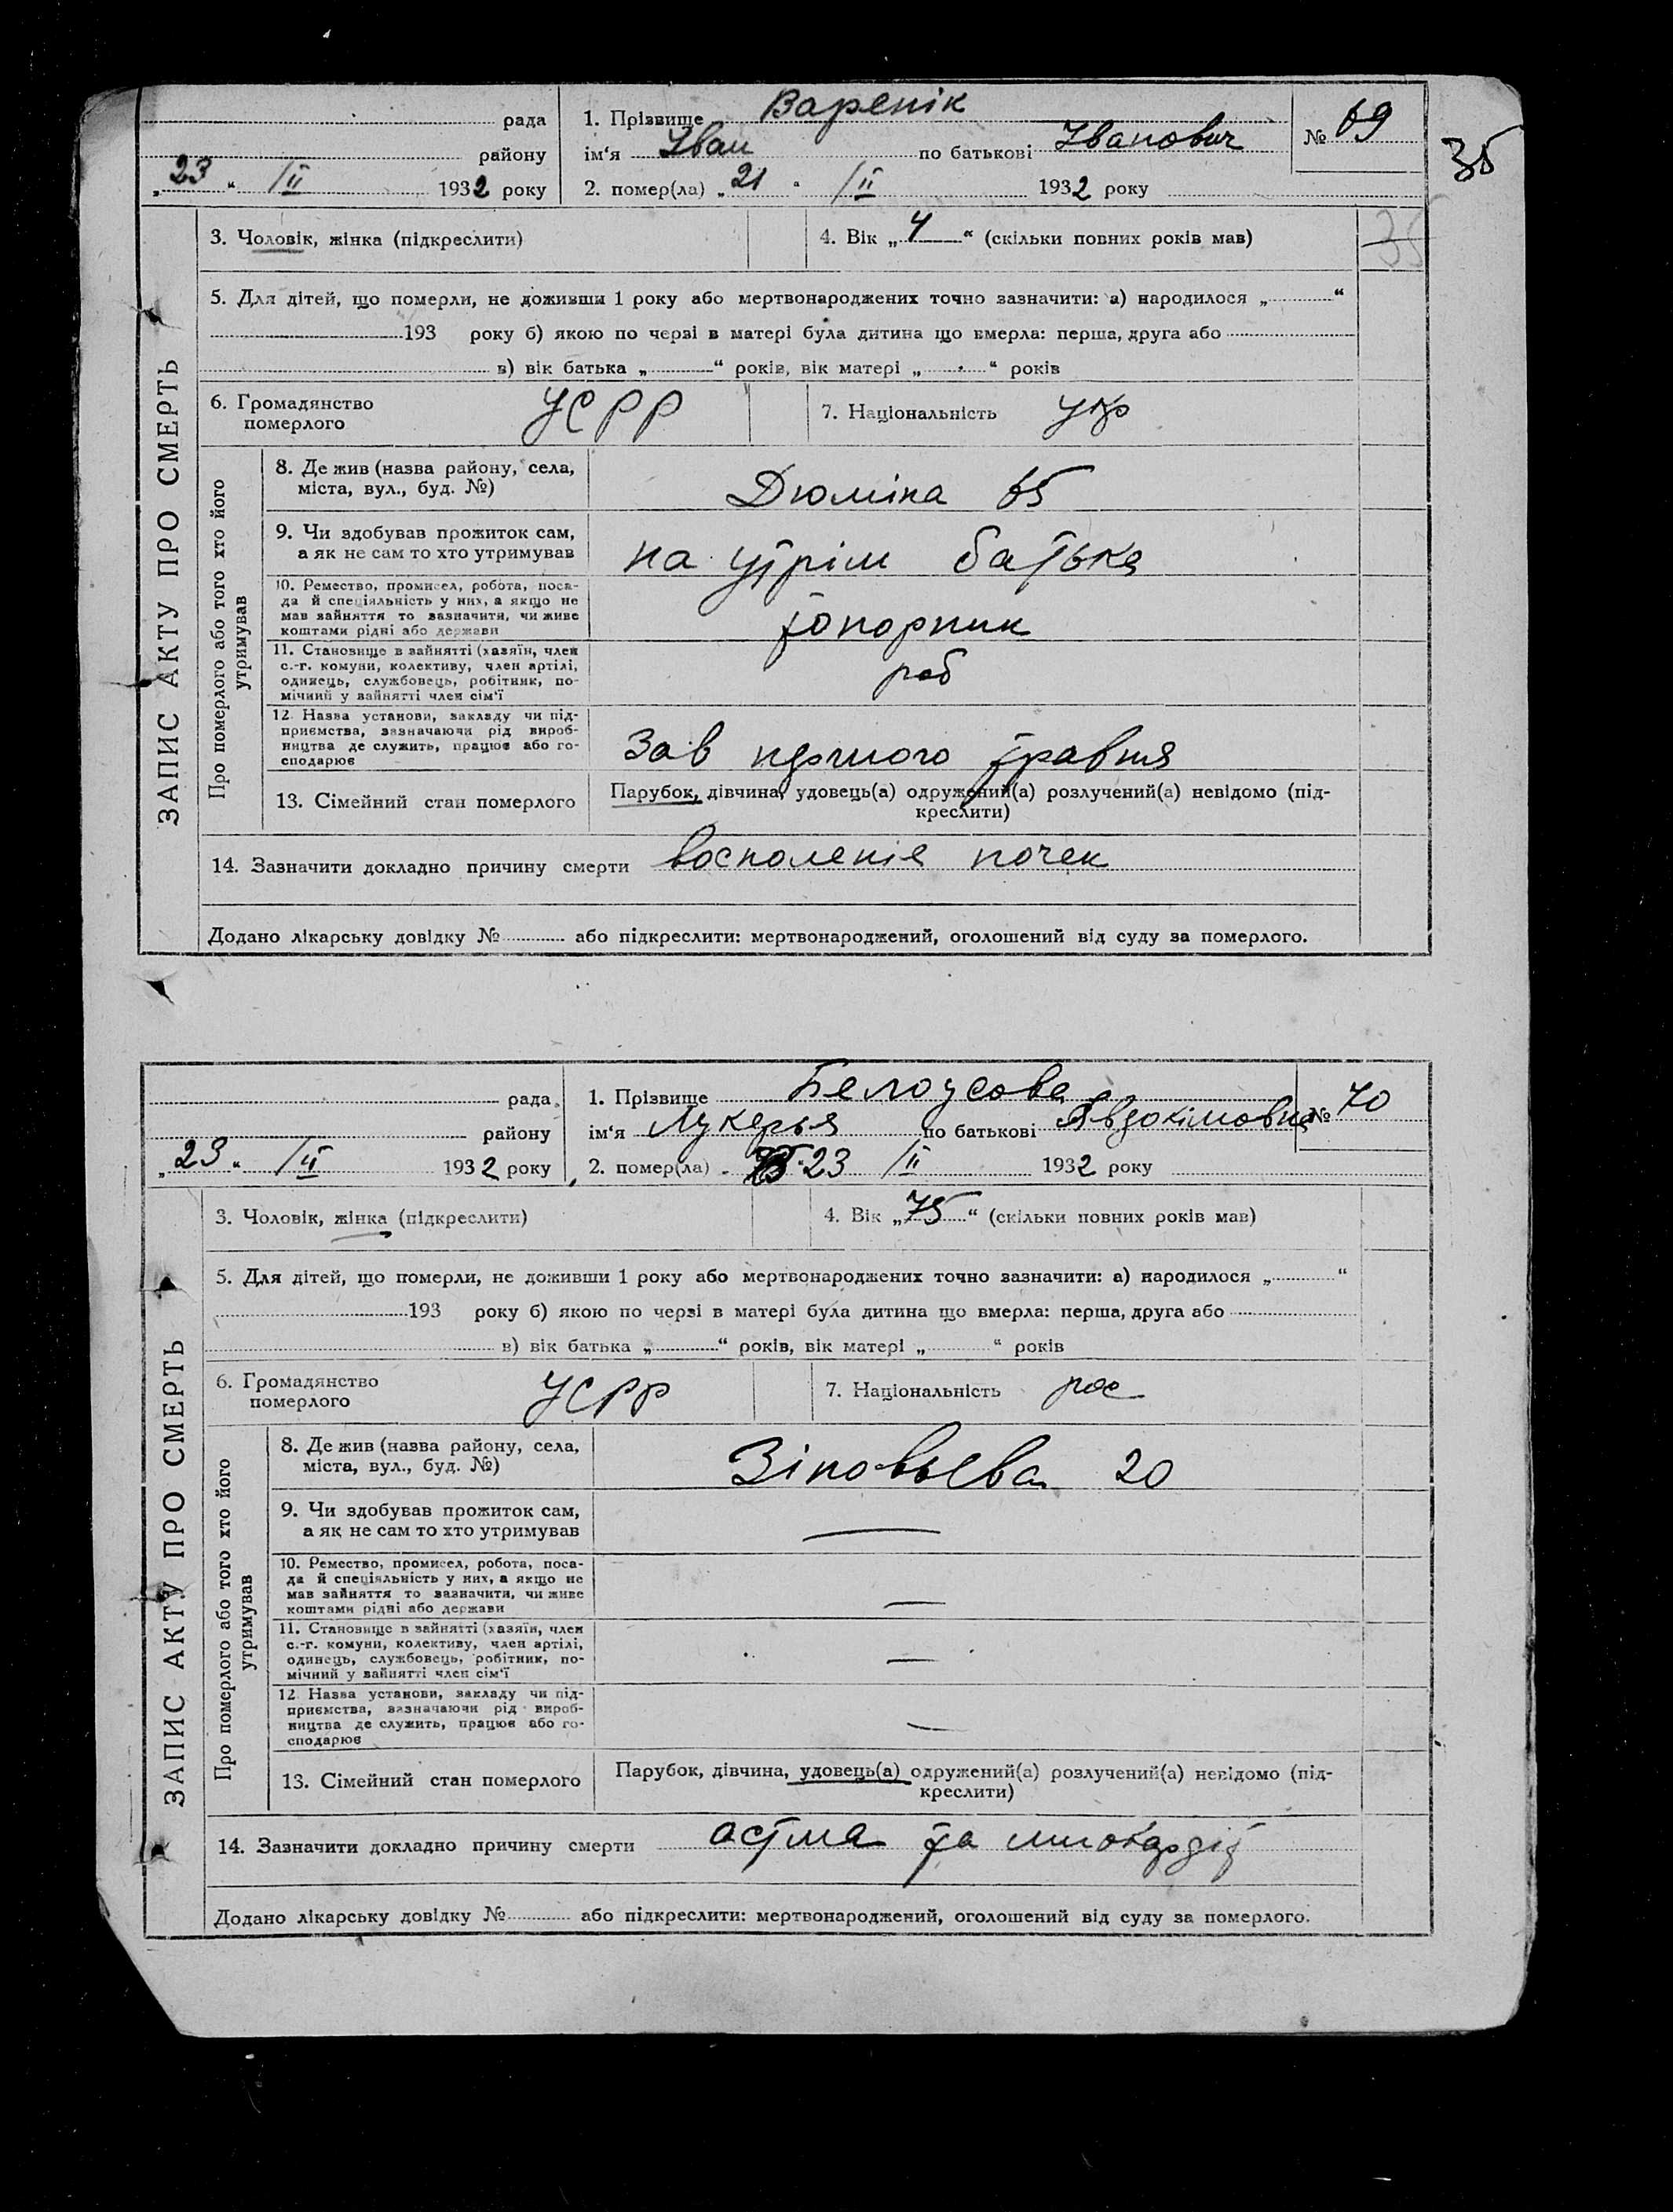 рада
1. Прізвище Варенік
№ 69
35
району
ім'я Іван по батькові Іванович
„23“ /II 1932 року
2. помер(ла) „21“ /II 1932 року
3. Чоловік, жінка (підкреслити)
4. Вік „4“ (скільки повних років мав)
35
5. Для дітей, що померли, не доживши 1 року або мертвонароджених точно зазначити: а) народилося „ “
193 року б) якою по черзі в матері була дитина що вмерла: перша, друга або
в) вік батька „ “ років, вік матері „ “ років
6. Громадянство
померлого
УСРР
7. Національність укр
ЗАПИС АКТУ ПРО СМЕРТЬ
Про померлого або того хто його
утримував
8. Де жив (назва району, села,
міста, вул., буд. №)
Дюміна 65
9. Чи здобував прожиток сам,
а як не сам то хто утримував
на утрім батька
10. Ремество, промисел, робота, поса-
да й спеціяльність у них, а якщо не
мав зайняття то зазначити, чи живе
коштами рідні або держави
топорник
11. Становище в зайнятті (хазяїн, член
с.-г. комуни, колективу, член артілі,
одинець, службовець, робітник, по-
мічний у зайнятті член сім'ї
роб
12. Назва установи, закладу чи під-
приємства, зазначаючи рід вироб-
ництва де служить, працює або го-
сподарює
Зав першого травня
13. Сімейний стан померлого
Парубок, дівчина, удовець(а) одружений(а) розлучений(а) невідомо (під-
креслити)
14. Зазначити докладно причину смерти восполеніе почек
Додано лікарську довідку № або підкреслити: мертвонароджений, оголошений від суду за померлого.
рада
1. Прізвище Белоусова
№ 70
району
ім'я Лукерья по батькові Явдокімовна
„23“ /II 1932 року
2. помер(ла) 23 /II 1932 року
3. Чоловік, жінка (підкреслити)
4. Вік „75“ (скільки повних років мав)
5. Для дітей, що померли, не доживши 1 року або мертвонароджених точно зазначити: а) народилося „ “
193 року б) якою по черзі в матері була дитина що вмерла: перша, друга або
в) вік батька „ “ років, вік матері „ “ років
6. Громадянство
померлого
УСРР
7. Національність рос
ЗАПИС АКТУ ПРО СМЕРТЬ
Про померлого або того хто його
утримував
8. Де жив (назва району, села,
міста, вул., буд. №)
Зіновьєва 20
9. Чи здобував прожиток сам,
а як не сам то хто утримував
—
10. Ремество, промисел, робота, поса-
да й спеціяльність у них, а якщо не
мав зайняття то зазначити, чи живе
коштами рідні або держави
—
11. Становище в зайнятті (хазяїн, член
с.-г. комуни, колективу, член артілі,
одинець, службовець, робітник, по-
мічний у зайнятті член сім'ї
—
12. Назва установи, закладу чи під-
приємства, зазначаючи рід вироб-
ництва де служить, працює або го-
сподарює
—
13. Сімейний стан померлого
Парубок, дівчина, удовець(а) одружений(а) розлучений(а) невідомо (під-
креслити)
14. Зазначити докладно причину смерти астма та миокардіт
Додано лікарську довідку № або підкреслити: мертвонароджений, оголошений від суду за померлого.